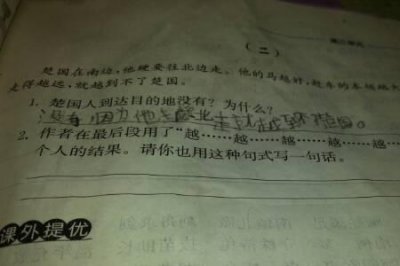 （二）
楚国在南边，他硬要往北边走。他的马越好，赶车的本领越大
走得越远，就越到不了楚国。
1. 楚国人到达目的地没有？为什么？
没有 因为他去 北走 越到不 楚国。
2. 作者在最后段用了“越……越……越……越……
个人的结果。请你也用这种句式写一句话。
课外提优